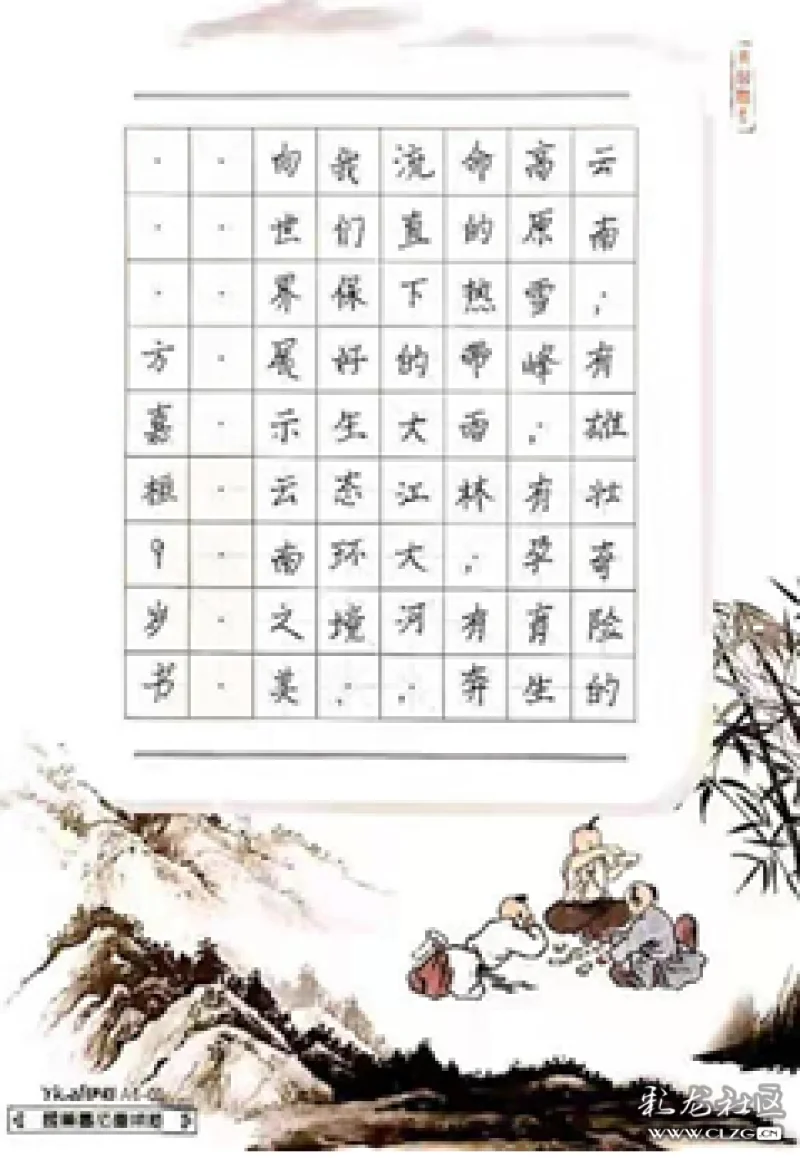 云南，有雄壮奇险的
高原雪峰，有孕育生
命的热带雨林，有奔
流直下的大江大河，
我们保好生态环境，
向世界展示云南之美
· · · · · · · · ·
· · · 方嘉桓9岁书
YiKaTING A4-02
彩龙社区
WWW.CLZG.CN